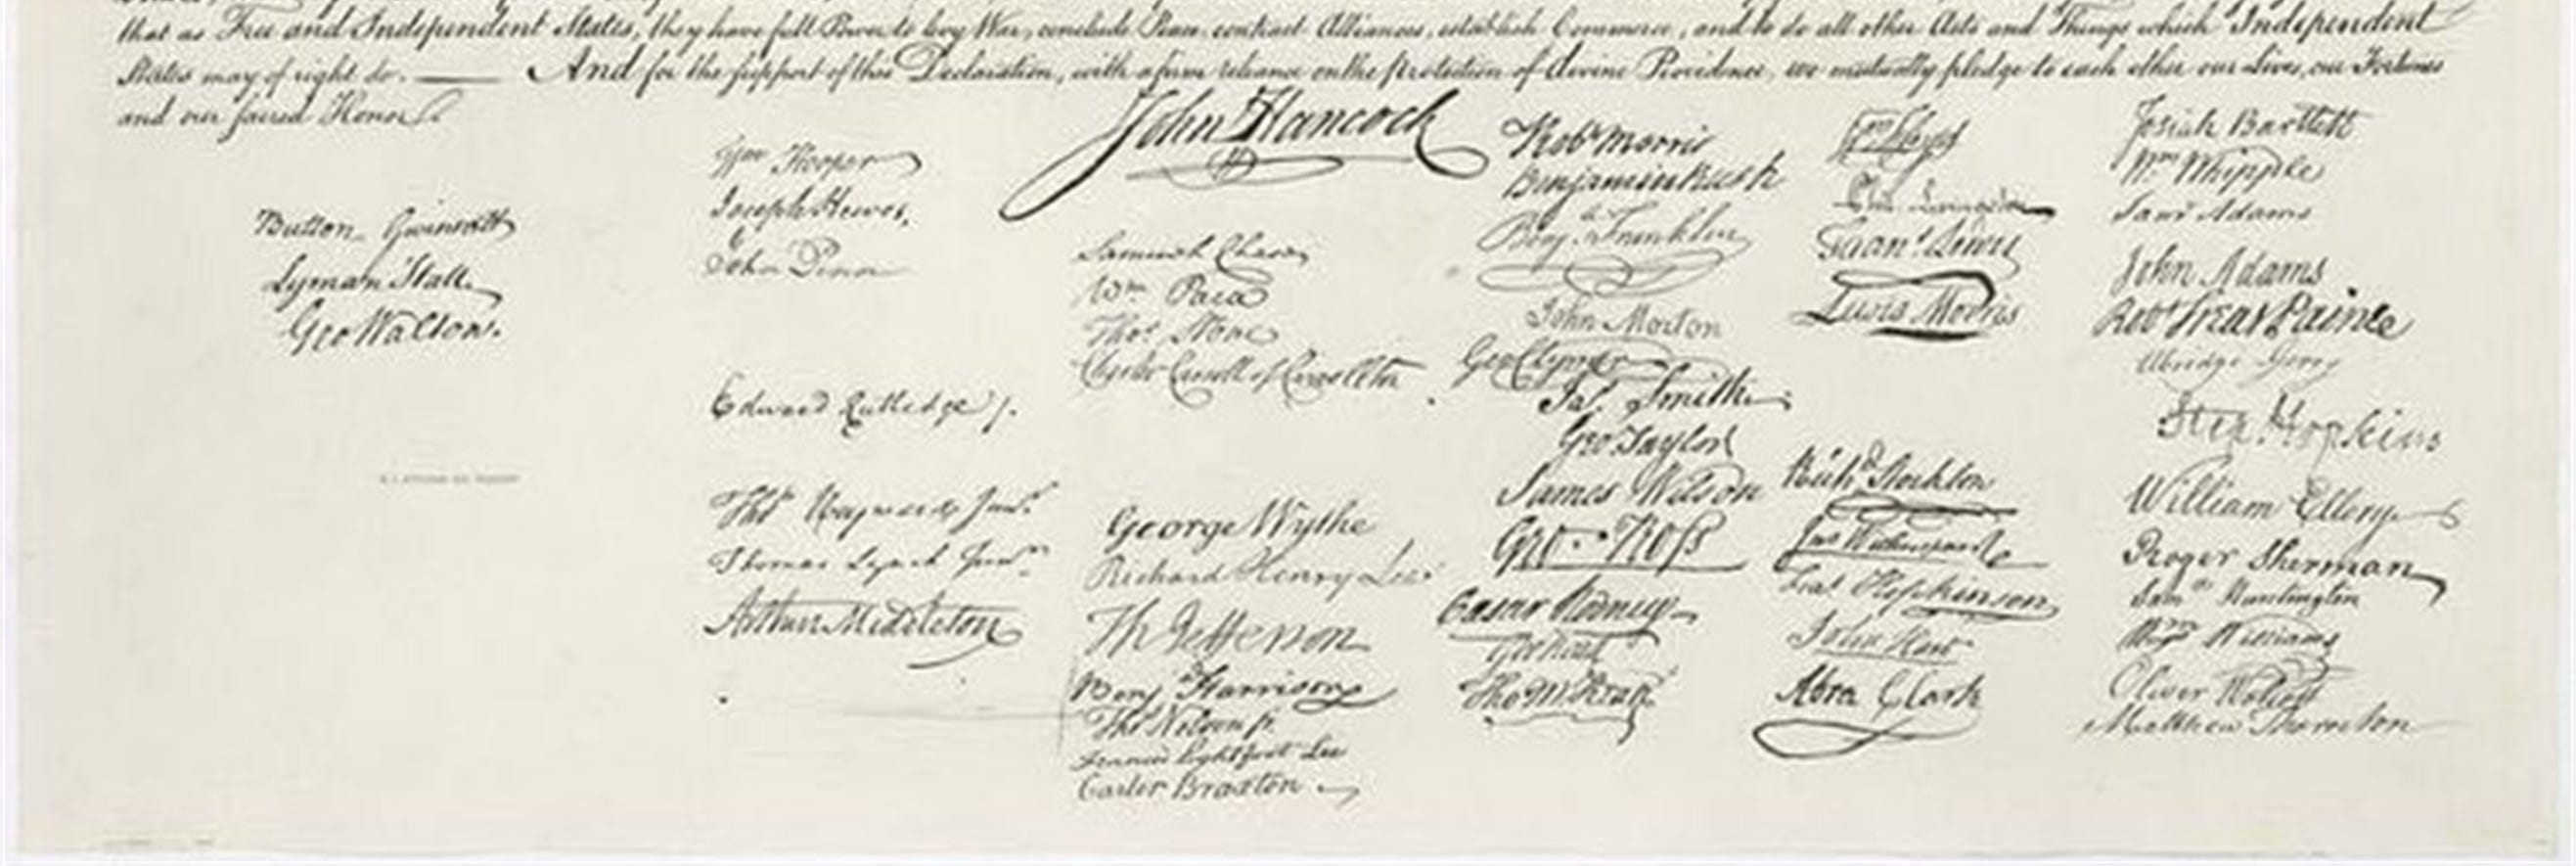 that as Free and Independent States, they have full Power to levy War, conclude Peace, contract Alliances, establish Commerce, and to do all other Acts and Things which Independent
States may of right do. — And for the support of this Declaration, with a firm reliance on the protection of divine Providence, we mutually pledge to each other our Lives, our Fortunes
and our sacred Honor.
Button Gwinnett
Lyman Hall.
Geo Walton.
Wm Hooper
Joseph Hewes,
John Penn
Edward Rutledge /.
Thos Heyward Junr.
Thomas Lynch Junr.
Arthur Middleton
John Hancock
Samuel Chase
Wm. Paca
Thos. Stone
Charles Carroll of Carrollton
George Wythe
Richard Henry Lee
Th Jefferson
Benj Harrison
Thos Nelson jr.
Francis Lightfoot Lee
Carter Braxton
Robt Morris
Benjamin Rush
Benj. Franklin
John Morton
Geo Clymer
Jas. Smith
Geo Taylor
James Wilson
Geo. Ross
Caesar Rodney
Geo Read
Tho M:Kean
Wm Floyd
Phil. Livingston
Frans. Lewis
Lewis Morris
Richd Stockton
Jno Witherspoon
Fras. Hopkinson
John Hart
Abra Clark
Josiah Bartlett
Wm Whipple
Saml Adams
John Adams
Robt Treat Paine
Elbridge Gerry
Step. Hopkins
William Ellery
Roger Sherman
Saml Huntington
Wm Williams
Oliver Wolcott
Matthew Thornton